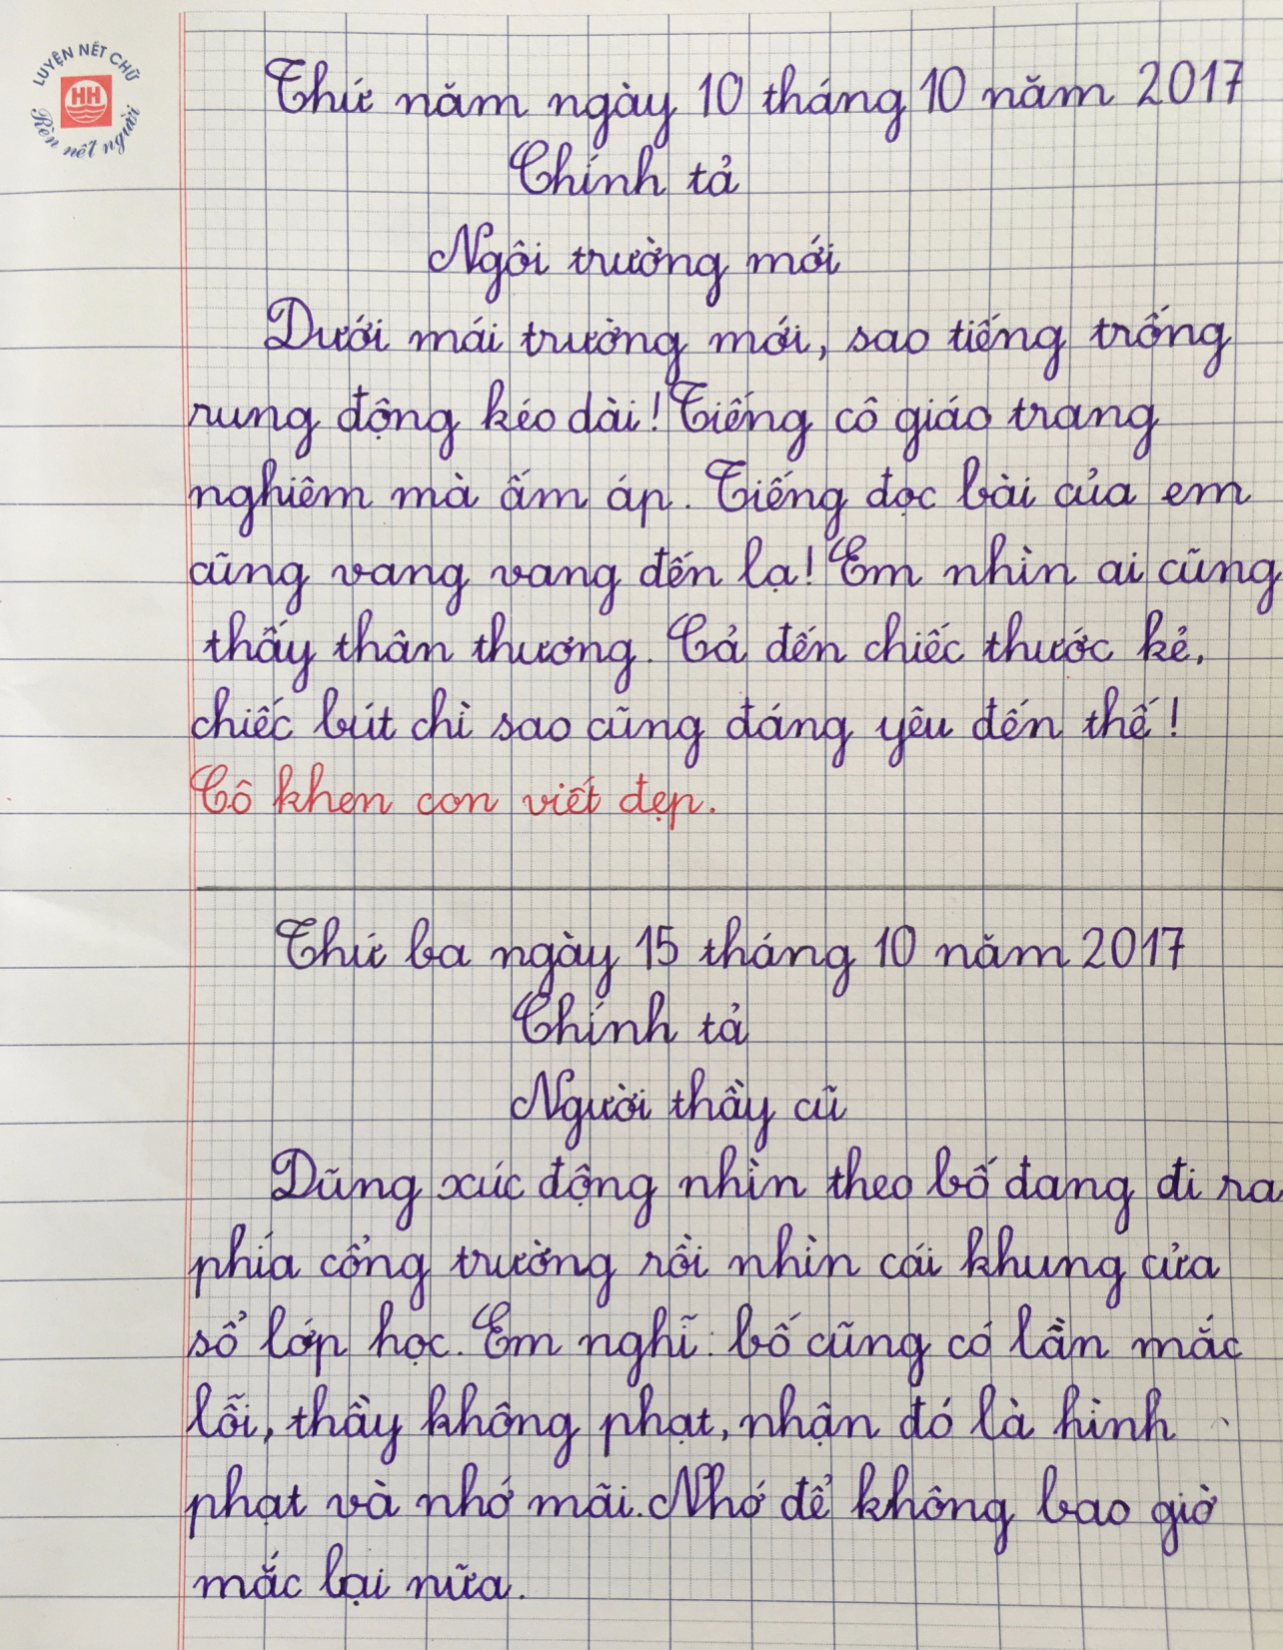 LUYỆN NÉT CHỮ
HH
Rèn nết người
Thứ năm ngày 10 tháng 10 năm 2017
Chính tả
Ngôi trường mới
Dưới mái trường mới, sao tiếng trống
rung động kéo dài! Tiếng cô giáo trang
nghiêm mà ấm áp. Tiếng đọc bài của em
cũng vang vang đến lạ! Em nhìn ai cũng
thấy thân thương. Cả đến chiếc thước kẻ,
chiếc bút chì sao cũng đáng yêu đến thế!
Cô khen con viết đẹp.
Thứ ba ngày 15 tháng 10 năm 2017
Chính tả
Người thầy cũ
Dũng xúc động nhìn theo bố đang đi ra
phía cổng trường rồi nhìn cái khung cửa
sổ lớp học. Em nghĩ: bố cũng có lần mắc
lỗi, thầy không phạt, nhận đó là hình
phạt và nhớ mãi. Nhớ để không bao giờ
mắc lại nữa.